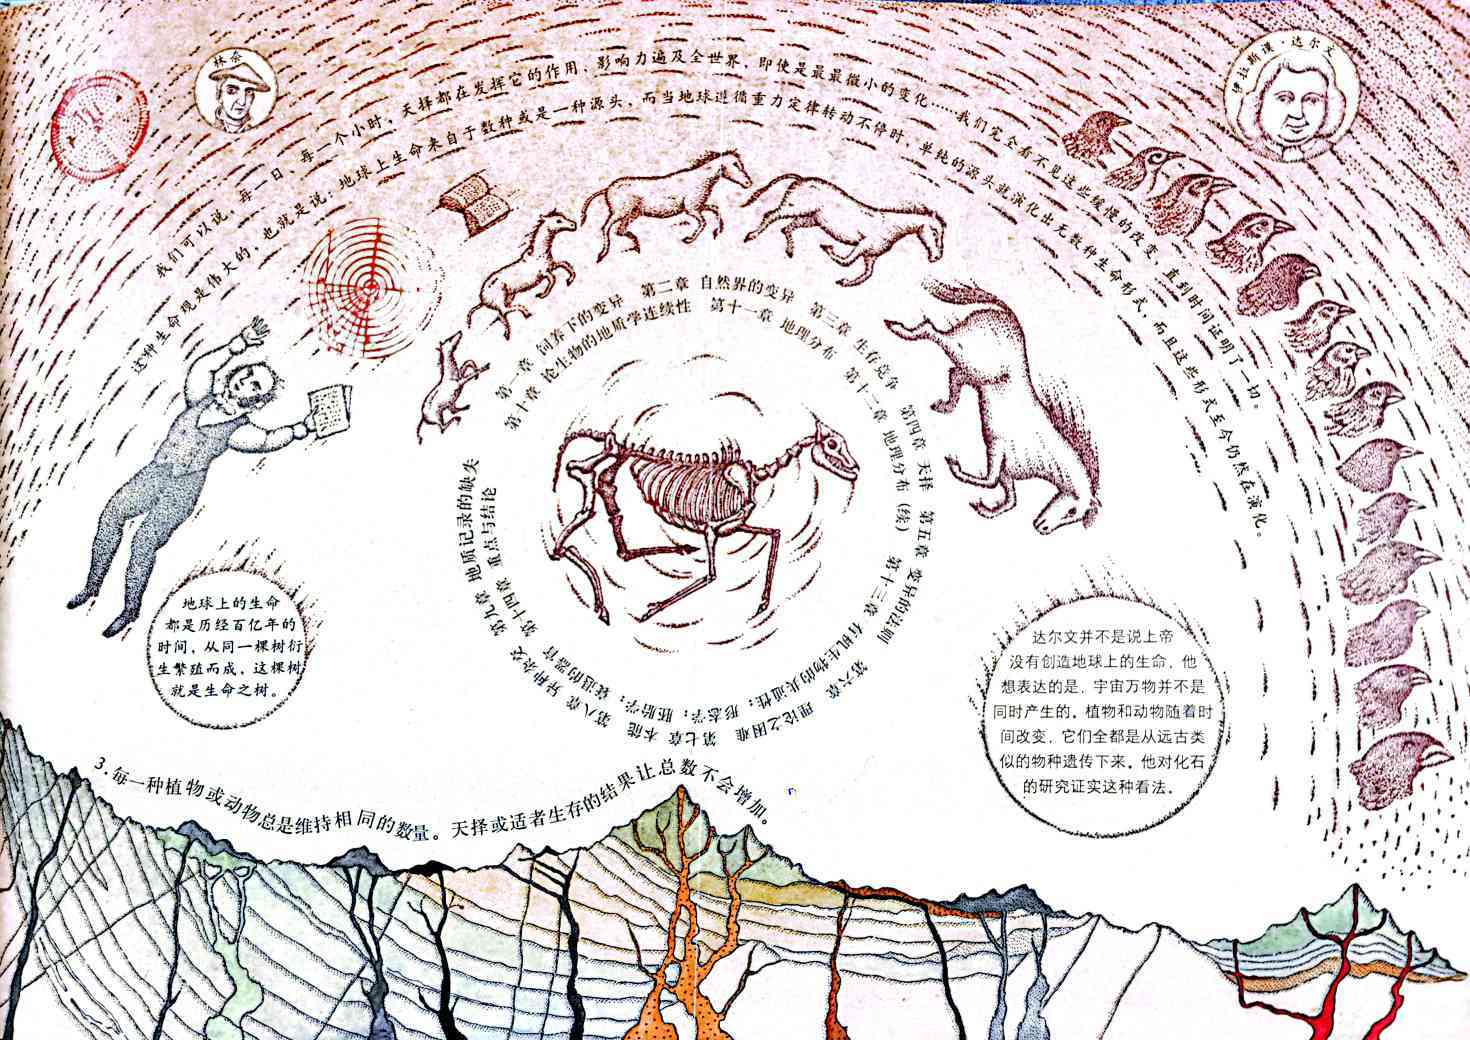 林奈
伊拉斯谟·达尔文
我们可以说，每一日、每一个小时，天择都在发挥它的作用，影响力遍及全世界，即使是最最微小的变化……我们完全看不见这些缓慢的改变，直到时间证明了一切。
这种生命观是伟大的，也就是说：地球上生命来自于数种或是一种源头，而当地球遵循重力定律转动不停时，单纯的源头就演化出无数种生命形式，而且这些形式至今仍然在演化。
第一章 饲养下的变异 第二章 自然界的变异 第三章 生存竞争 第四章 天择 第五章 变异的法则 第六章 理论之困难 第七章 本能 第八章 异种杂交 第九章 地质记录的缺失
第十章 论生物的地质学连续性 第十一章 地理分布 第十二章 地理分布（续） 第十三章 有机生物的共通性；形态学；胚胎学；衰退的器官 第十四章 重点与结论
地球上的生命
都是历经百亿年的
时间，从同一棵树衍
生繁殖而成，这棵树
就是生命之树。
达尔文并不是说上帝
没有创造地球上的生命，他
想表达的是，宇宙万物并不是
同时产生的。植物和动物随着时
间改变，它们全都是从远古类
似的物种遗传下来。他对化石
的研究证实这种看法。
3.每一种植物或动物总是维持相同的数量。天择或适者生存的结果让总数不会增加。